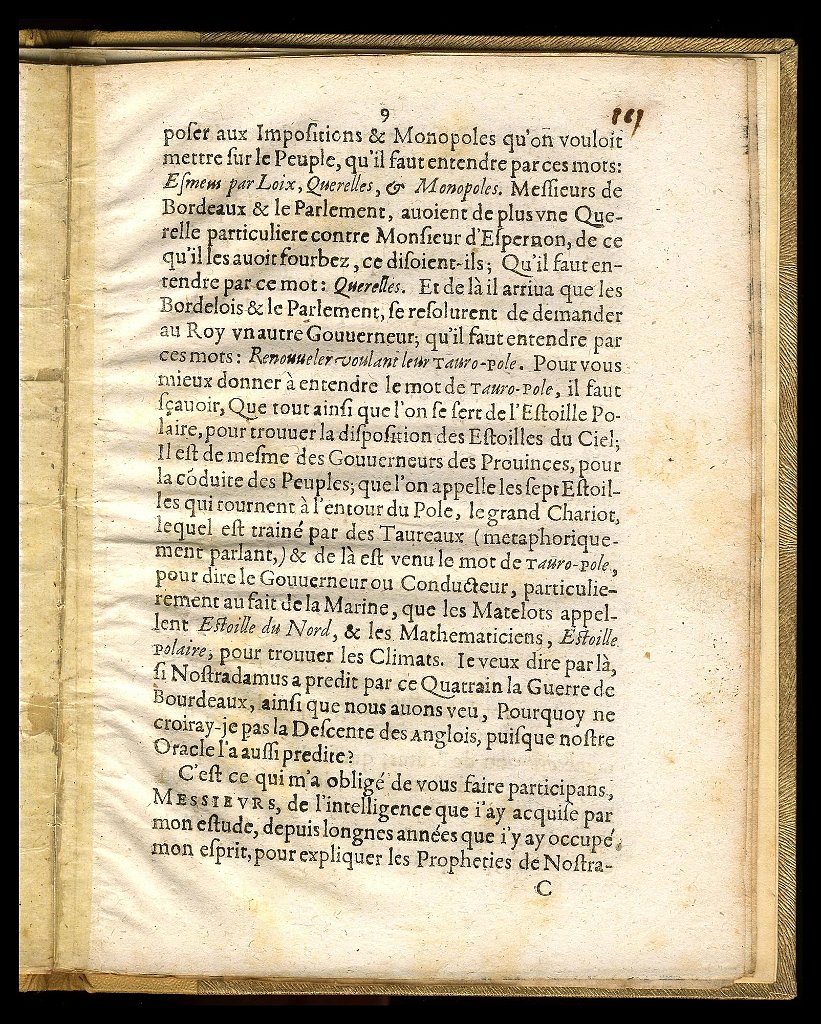 9
poſer aux Impoſitions & Monopoles qu'on vouloit
mettre ſur le Peuple, qu'il faut entendre par ces mots:
Eſmeus par Loix, Querelles, & Monopoles. Meſſieurs de
Bordeaux & le Parlement, auoient de plus vne Que-
relle particuliere contre Monſieur d'Eſpernon, de ce
qu'il les auoit fourbez, ce diſoient-ils; Qu'il faut en-
tendre par ce mot: Querelles. Et de là il arriua que les
Bordelois & le Parlement, ſe reſolurent de demander
au Roy vn autre Gouuerneur; qu'il faut entendre par
ces mots: Renouueler voulant leur Tauro-pole. Pour vous
mieux donner à entendre le mot de Tauro-Pole, il faut
ſçauoir, Que tout ainſi que l'on ſe ſert de l'Eſtoille Po-
laire, pour trouuer la diſpoſition des Eſtoilles du Ciel;
Il eſt de meſme des Gouuerneurs des Prouinces, pour
la cõduite des Peuples; que l'on appelle les ſept Eſtoil-
les qui tournent à l'entour du Pole, le grand Chariot,
lequel eſt trainé par des Taureaux (metaphorique-
ment parlant,) & de là eſt venu le mot de Tauro-pole,
pour dire le Gouuerneur ou Conducteur, particulie-
rement au fait de la Marine, que les Matelots appel-
lent Eſtoille du Nord, & les Mathematiciens, Eſtoille
Polaire, pour trouuer les Climats. Ie veux dire par là,
ſi Noſtradamus a predit par ce Quatrain la Guerre de
Bourdeaux, ainſi que nous auons veu, Pourquoy ne
croiray-je pas la Deſcente des Anglois, puiſque noſtre
Oracle l'a auſſi predite?
C'eſt ce qui m'a obligé de vous faire participans,
MESSIEVRS, de l'intelligence que i'ay acquiſe par
mon eſtude, depuis longnes années que i'y ay occupé
mon eſprit, pour expliquer les Propheties de Noſtra-
C